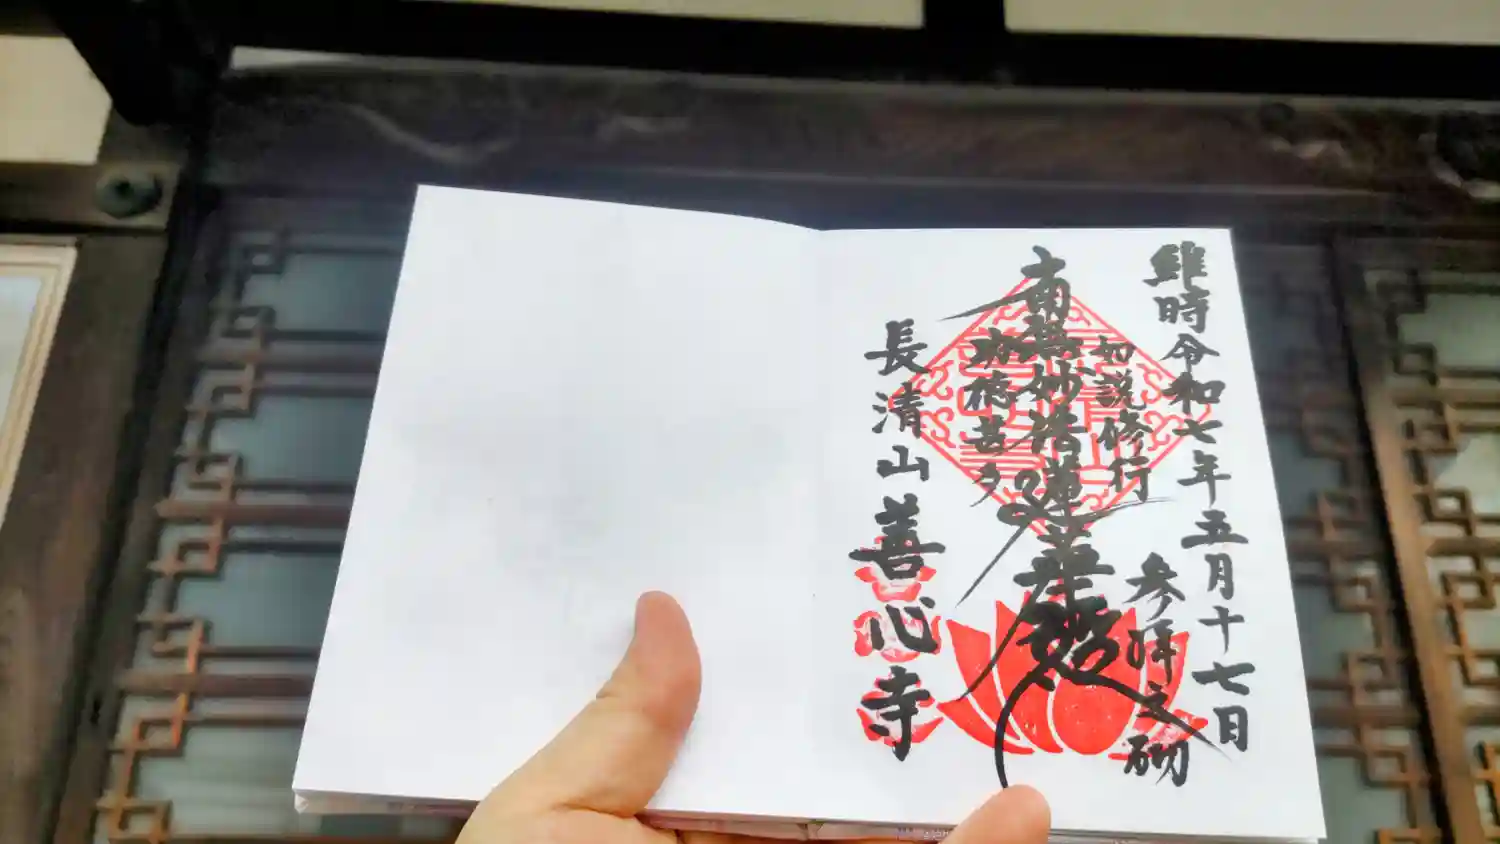 維時令和七年五月十七日
参拝之砌
如説修行
南無妙法蓮華経
功徳甚多
長清山善心寺